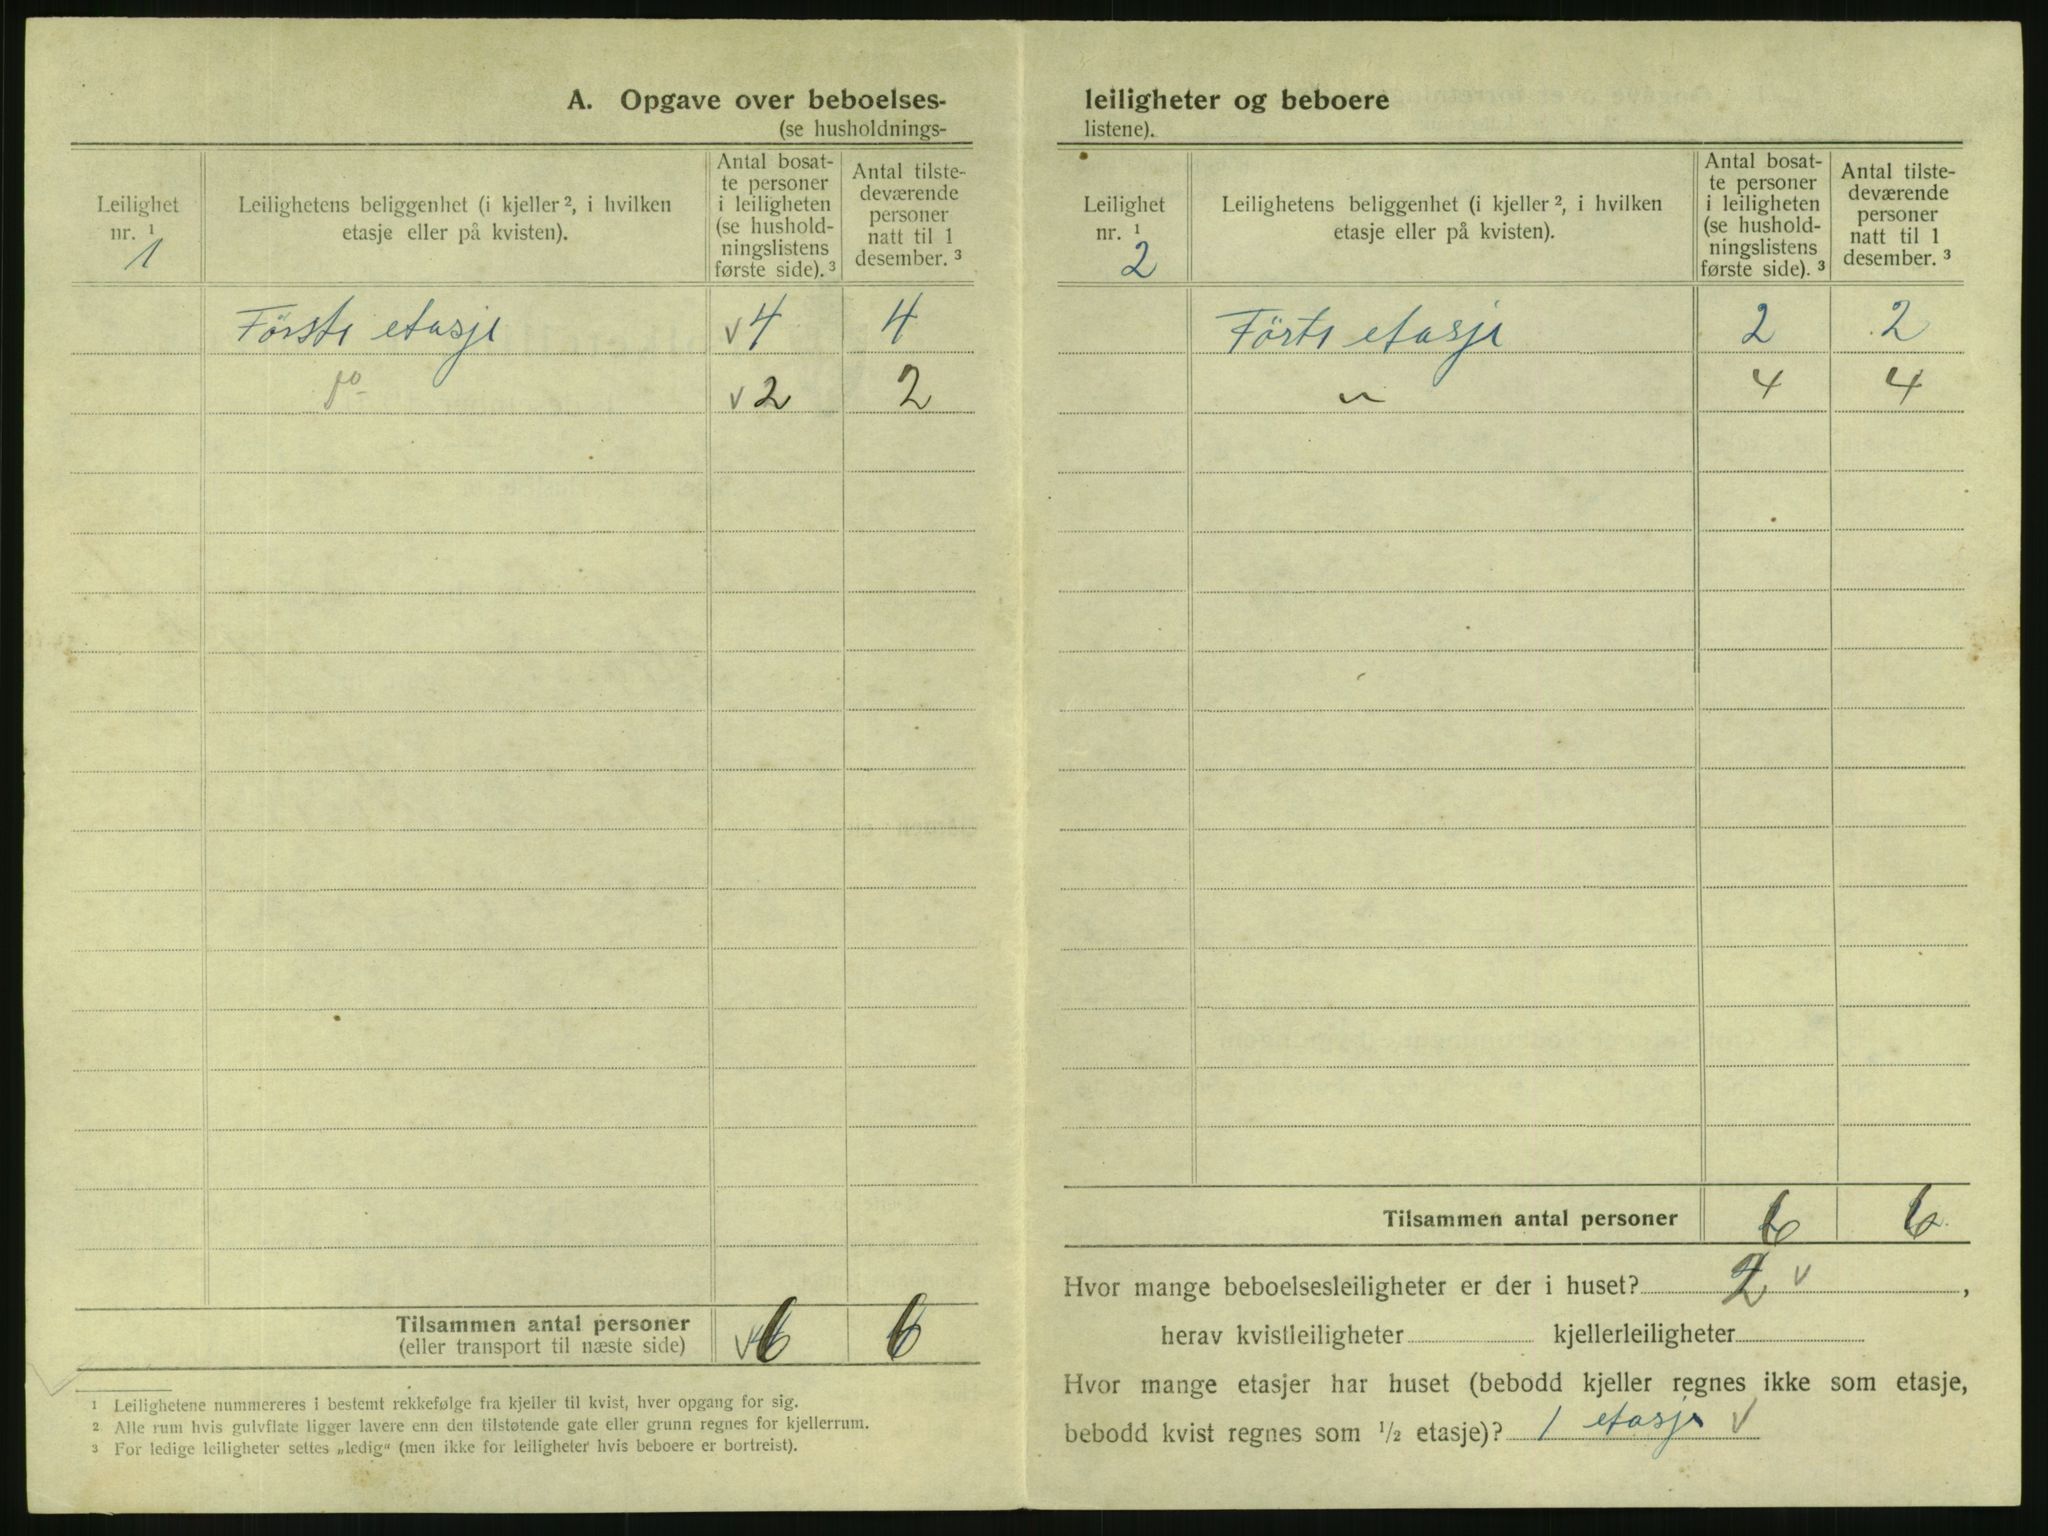 A. Opgave over beboelses-
(se husholdnings-
Leilighet
nr. ¹
1
Leilighetens beliggenhet (i kjeller ², i hvilken
etasje eller på kvisten).
Antal bosat-
te personer
i leiligheten
(se hushold-
ningslistens
første side). ³
Antal tilste-
deværende
personer
natt til 1
desember. ³
Første etasje v4 4
do v2 2
Tilsammen antal personer
(eller transport til næste side) v6 6
¹ Leilighetene nummereres i bestemt rekkefølge fra kjeller til kvist, hver opgang for sig.
² Alle rum hvis gulvflate ligger lavere enn den tilstøtende gate eller grunn regnes for kjellerrum.
³ For ledige leiligheter settes „ledig“ (men ikke for leiligheter hvis beboere er bortreist).
leiligheter og beboere
listene).
Leilighet
nr. ¹
2
Leilighetens beliggenhet (i kjeller ², i hvilken
etasje eller på kvisten).
Antal bosat-
te personer
i leiligheten
(se hushold-
ningslistens
første side). ³
Antal tilste-
deværende
personer
natt til 1
desember. ³
Förte etasje 2 2
" 4 4
Tilsammen antal personer 6 6
Hvor mange beboelsesleiligheter er der i huset? 2 v,
herav kvistleiligheter kjellerleiligheter
Hvor mange etasjer har huset (bebodd kjeller regnes ikke som etasje,
bebodd kvist regnes som ½ etasje)? 1 etasje v